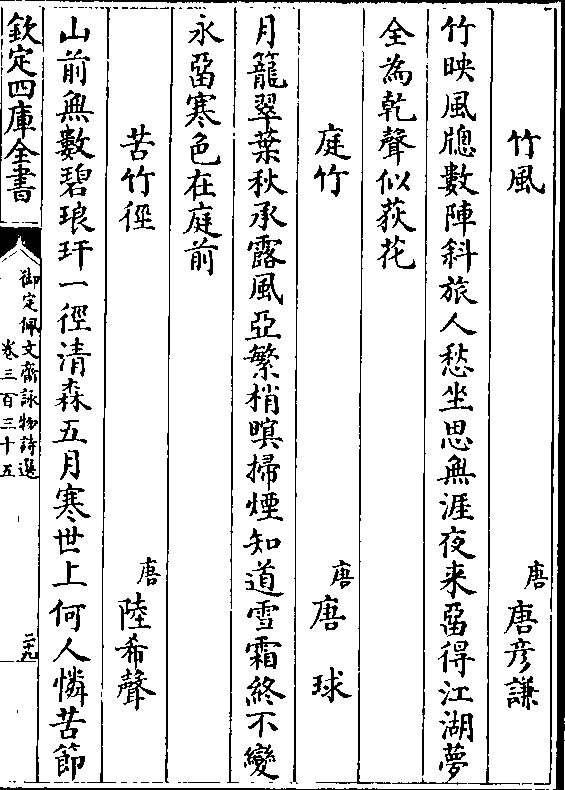 竹風
唐唐彦謙
竹映風牕數陣斜旅人愁坐思無涯夜来畱得江湖夢
全為乾聲似荻花
庭竹
唐唐球
月籠翠葉秋承露風亞繁梢暝掃煙知道雪霜終不變
永畱寒色在庭前
苦竹徑
唐陸希聲
山前無數碧琅玕一徑清森五月寒世上何人憐苦節
欽定四庫全書
御定佩文齋詠物詩選
卷三百三十五
二十九